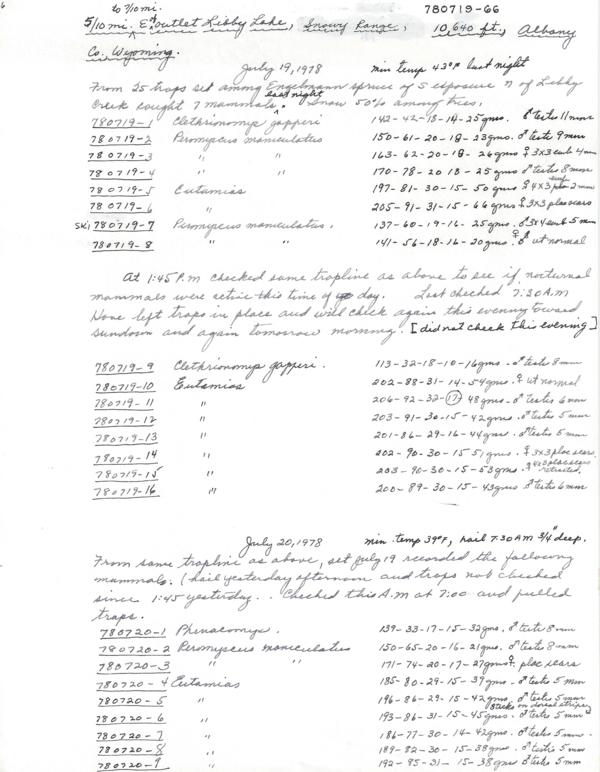 to 7/10 mi. 780719-66
5/10 mi. E of outlet Libby Lake, Snowy Range, 10,640 ft, Albany
Co. Wyoming.
July 19, 1978 min temp 43°F last night
From 25 traps set among Engelmann spruce of S exposure N of Libby
Creek caught 7 mammals last night. Snow 50% among trees.
780719-1 Clethrionomys gapperi 142-42-18-14-25 gms. ♂ testes 11 mm
780719-2 Peromyscus maniculatus 150-61-20-18-23 gms. ♂ testes 9 mm
780719-3 " " 163-62-20-18-26 gms ♀ 3x3 emb 4 mm
780719-4 " " 170-78-20 18-25 gms ♂ testes 8 mm
780719-5 Eutamias 197-81-30-15-50 gms ♀ 4x3 emb 2 mm
780719-6 " 205-91-31-15-66 gms ♀ 3x3 plac scars
SK; 780719-7 Peromyscus maniculatus. 137-60-19-16-25 gms. 3x4 emb 5 mm
780719-8 " " 141-56-18-16-20 gms. ♀ ut normal
At 1:45 P.M checked same trapline as above to see if nocturnal
mammals were active this time of day. Last checked 7:30 A.M
Have left traps in place and will check again this evening toward
sundown and again tomorrow morning. [did not check this evening]
780719-9 Clethrionomys gapperi. 113-32-18-10-16 gms. ♂ testes 8 mm
780719-10 Eutamias 202-88-31-14-54 gms. ♀ ut normal
780719-11 " 206-92-32-17-48 gms. ♂ testes 6 mm
780719-12 " 203-91-30-15-42 gms. ♂ testes 5 mm
780719-13 " 201-86-29-16-44 gms. ♂ testes 5 mm
780719-14 " 202-90-30-15-51 gms. ♀ 3x3 plac scars.
780719-15 " 203-90-30-15-53 gms. ♀ 4x3 plac scars
780719-16 " 200-89-30-15-43 gms ♂ testes 6 mm
July 20, 1978 min. temp 39°F, hail 7:30 AM 3/4" deep.
From same trapline as above, set July 19 recorded the following
mammals. (hail yesterday afternoon and traps not checked
since 1:45 yesterday. . Checked this A.M at 7:00 and pulled
traps.
780720-1 Phenacomys. 139-33-17-15-32 gms. ♂ testes 8 mm
780720-2 Peromyscus maniculatus 150-65-20-16-21 gms. ♂ testes 8 mm
780720-3 " " 171-74-20-17-27 gms ♀. plac scars
780720-4 Eutamias 185-80-29-15-37 gms. ♂ testes 5 mm
780720-5 " 196-86-29-15-42 gms. ♂ testes 5 mm
780720-6 " 193-86-31-15-45 gms. ♂ testes 5 mm on dorsal stripe
780720-7 " 186-77-30-14-42 gms. ♂ testes 5 mm.
780720-8 " 189-82-30-15-38 gms. ♂ testes 5 mm
780720-9 " 192-85-31-15-38 gms ♂ testes 5 mm